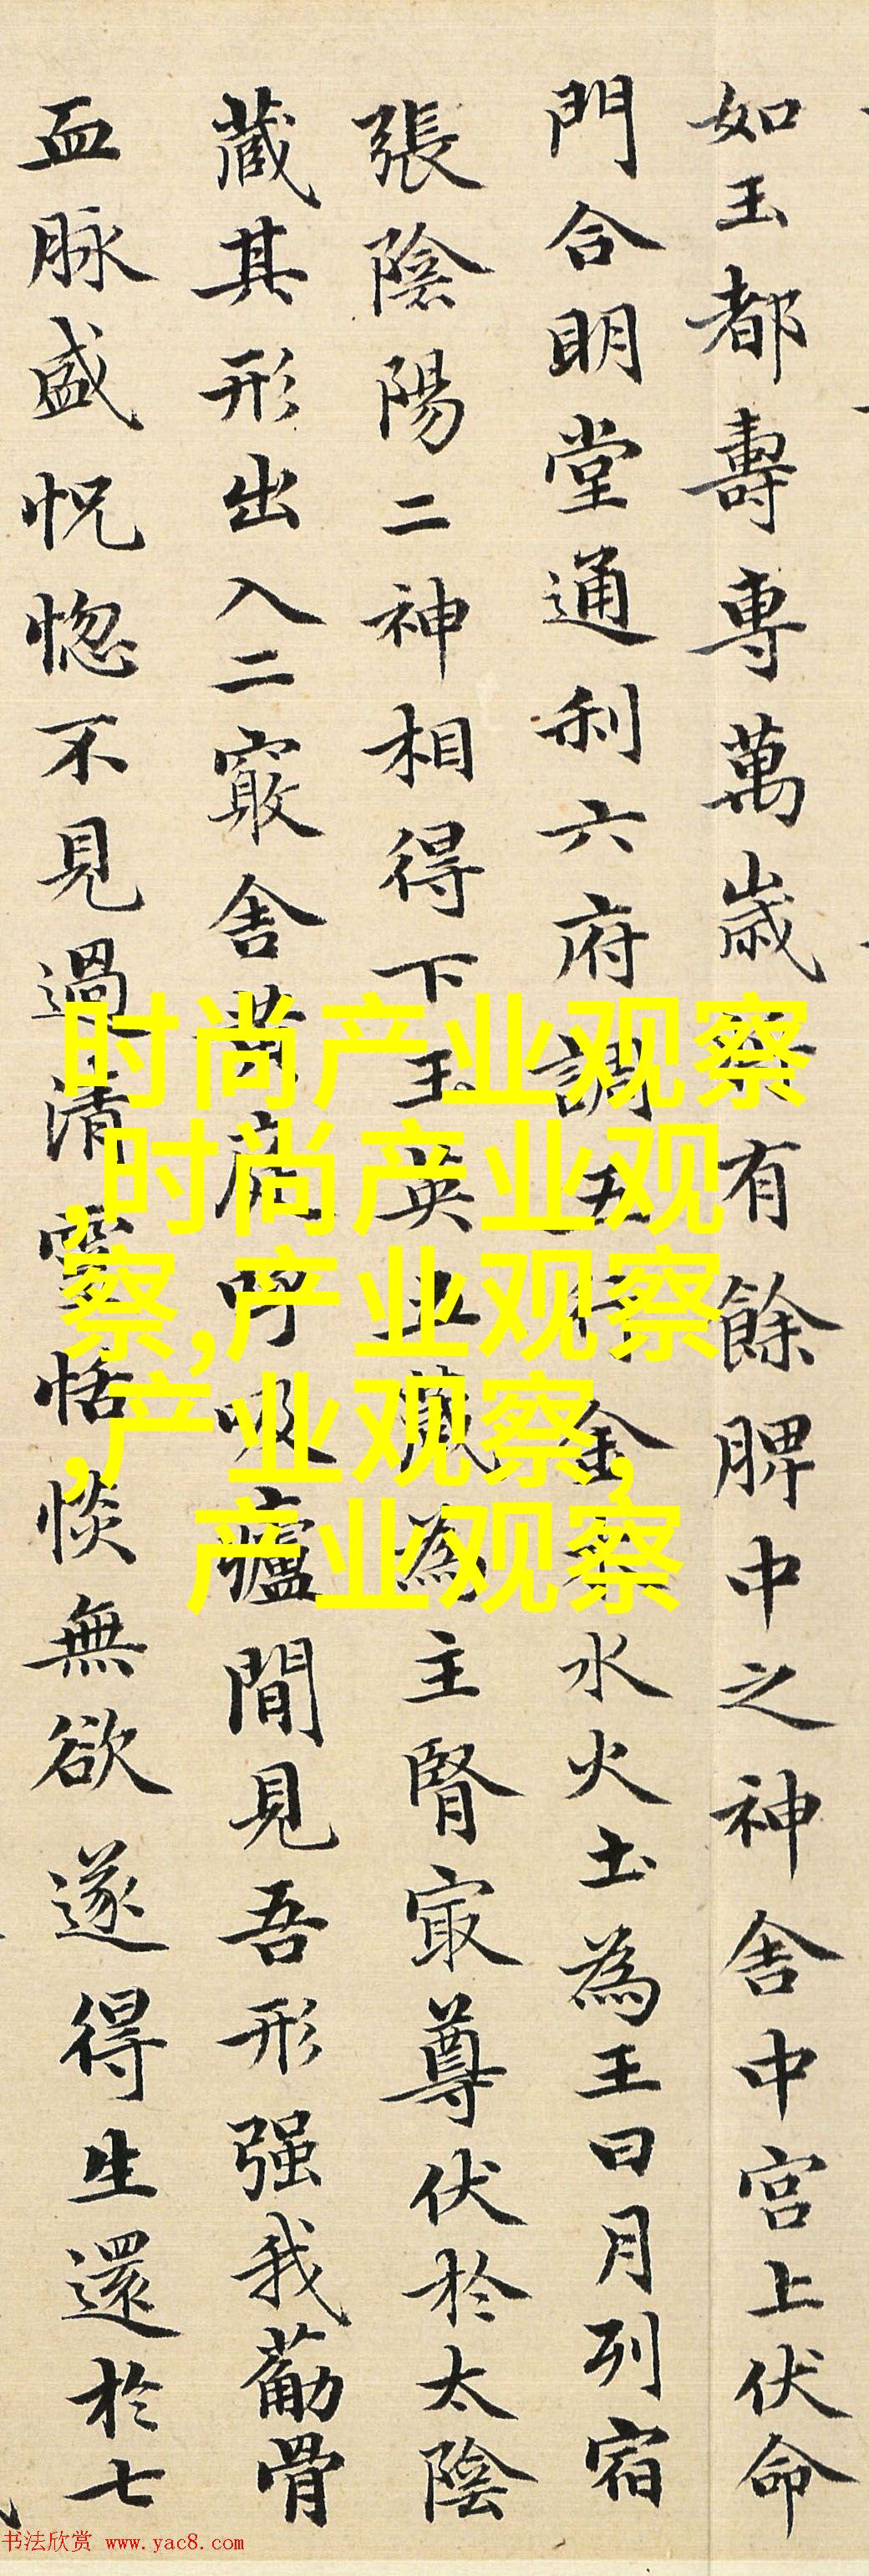 如玉都壽專萬歲年有餘脾中之神舍中宮上伏命
門合明堂通利六府調五行金木水火土為王日月列宿
張陰陽二神相得下玉英五藏為主腎寂尊伏於太陰
藏其形出入二竅舍黃庭呼吸廬間見吾形强我葋骨
血脉盛怳惚不見過清靈恬惔無欲遂得生還於七
时尚产业观察
时尚产业观
察,产业观察
,产业观察,
产业观察
书法欣赏 www.yac8.com